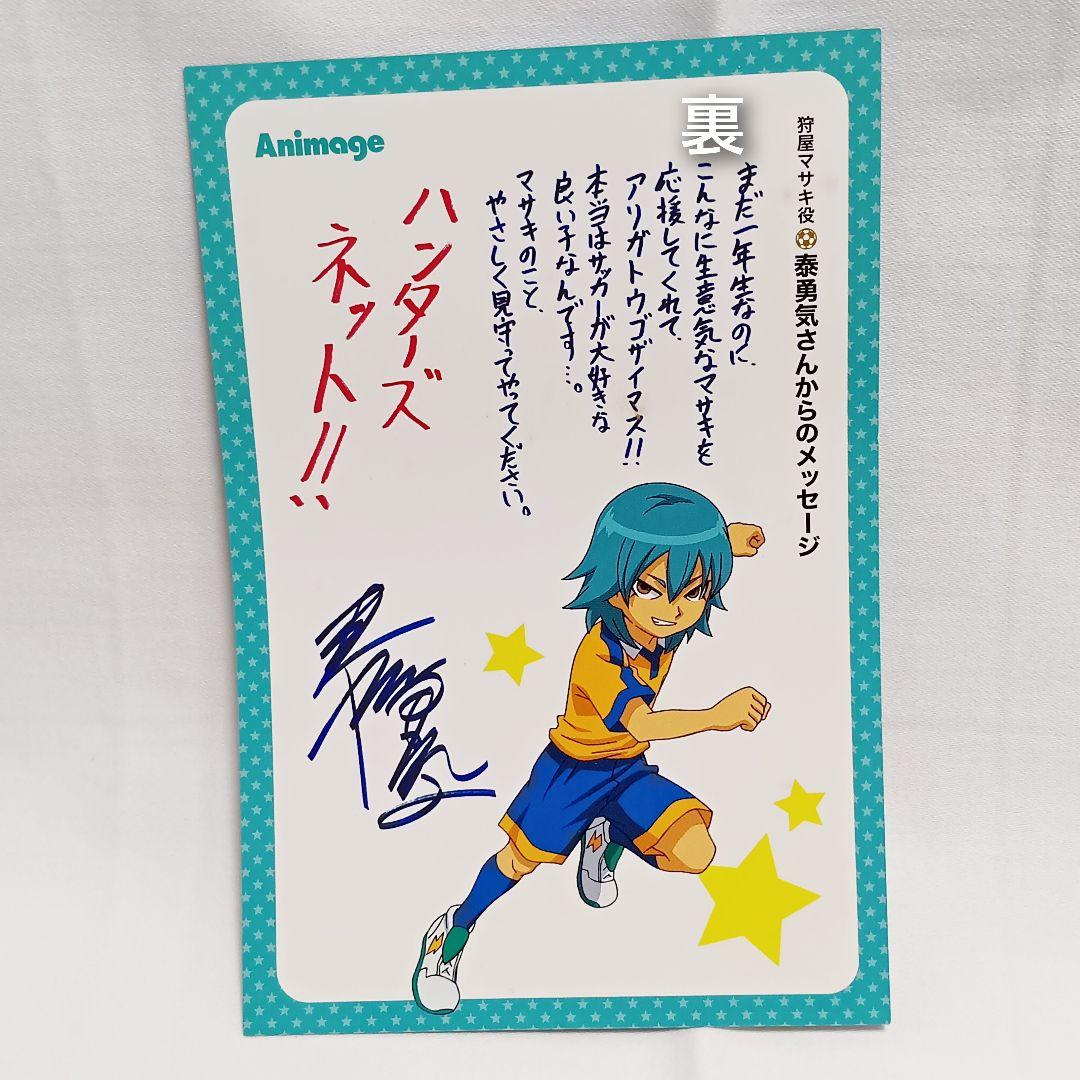 Animage
裏
狩屋マサキ役 泰勇気さんからのメッセージ
まだ一年生なのに、
こんなに生意気なマサキを
応援してくれて、
アリガトウゴザイマス!!
本当はサッカーが大好きな
良い子なんです…。
マサキのこと、
やさしく見守ってやってください。
ハンターズ
ネット!!